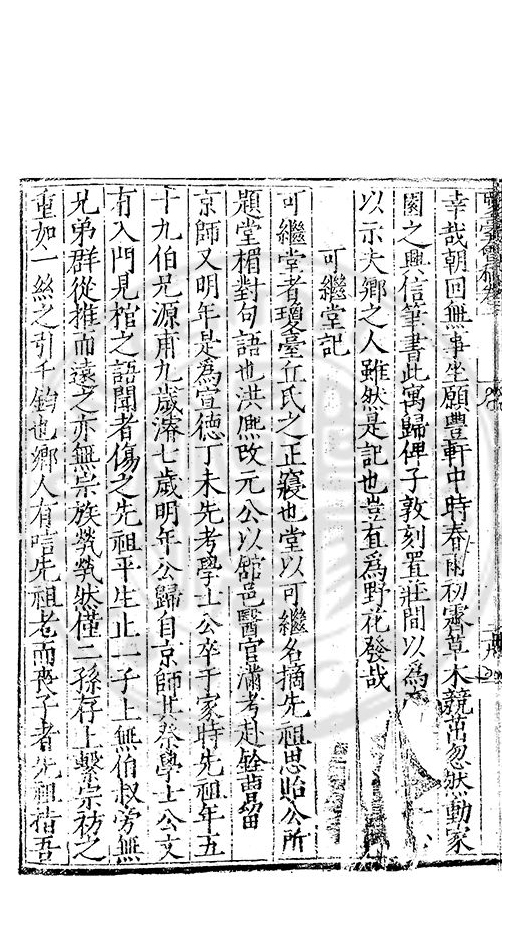 幸哉朝回無事坐願豐軒中時春雨初霽草木競茁忽然動家
園之興信筆書此寓歸俾子敦刻置莊間以為
以示夫鄉之人雖然是記也豈直為野花發哉
可繼堂記
可繼堂者瓊臺丘氏之正寢也堂以可繼名摘先祖思貽公所
題堂楣對句語也洪熙改元公以臨邑醫官滿考赴銓曹留
京師又明年是為宣德丁未先考學士公卒于家時先祖年五
十九伯兄源甫九歲濬七歲明年公歸自京師其祭學士公文
有入門見棺之語聞者傷之先祖平生止一子上無伯叔旁無
兄弟群從推而遠之亦無宗族煢煢然僅二孫存上繫宗祊之
重如一絲之引千鈞也鄉人有唁先祖老而喪子者先祖指吾